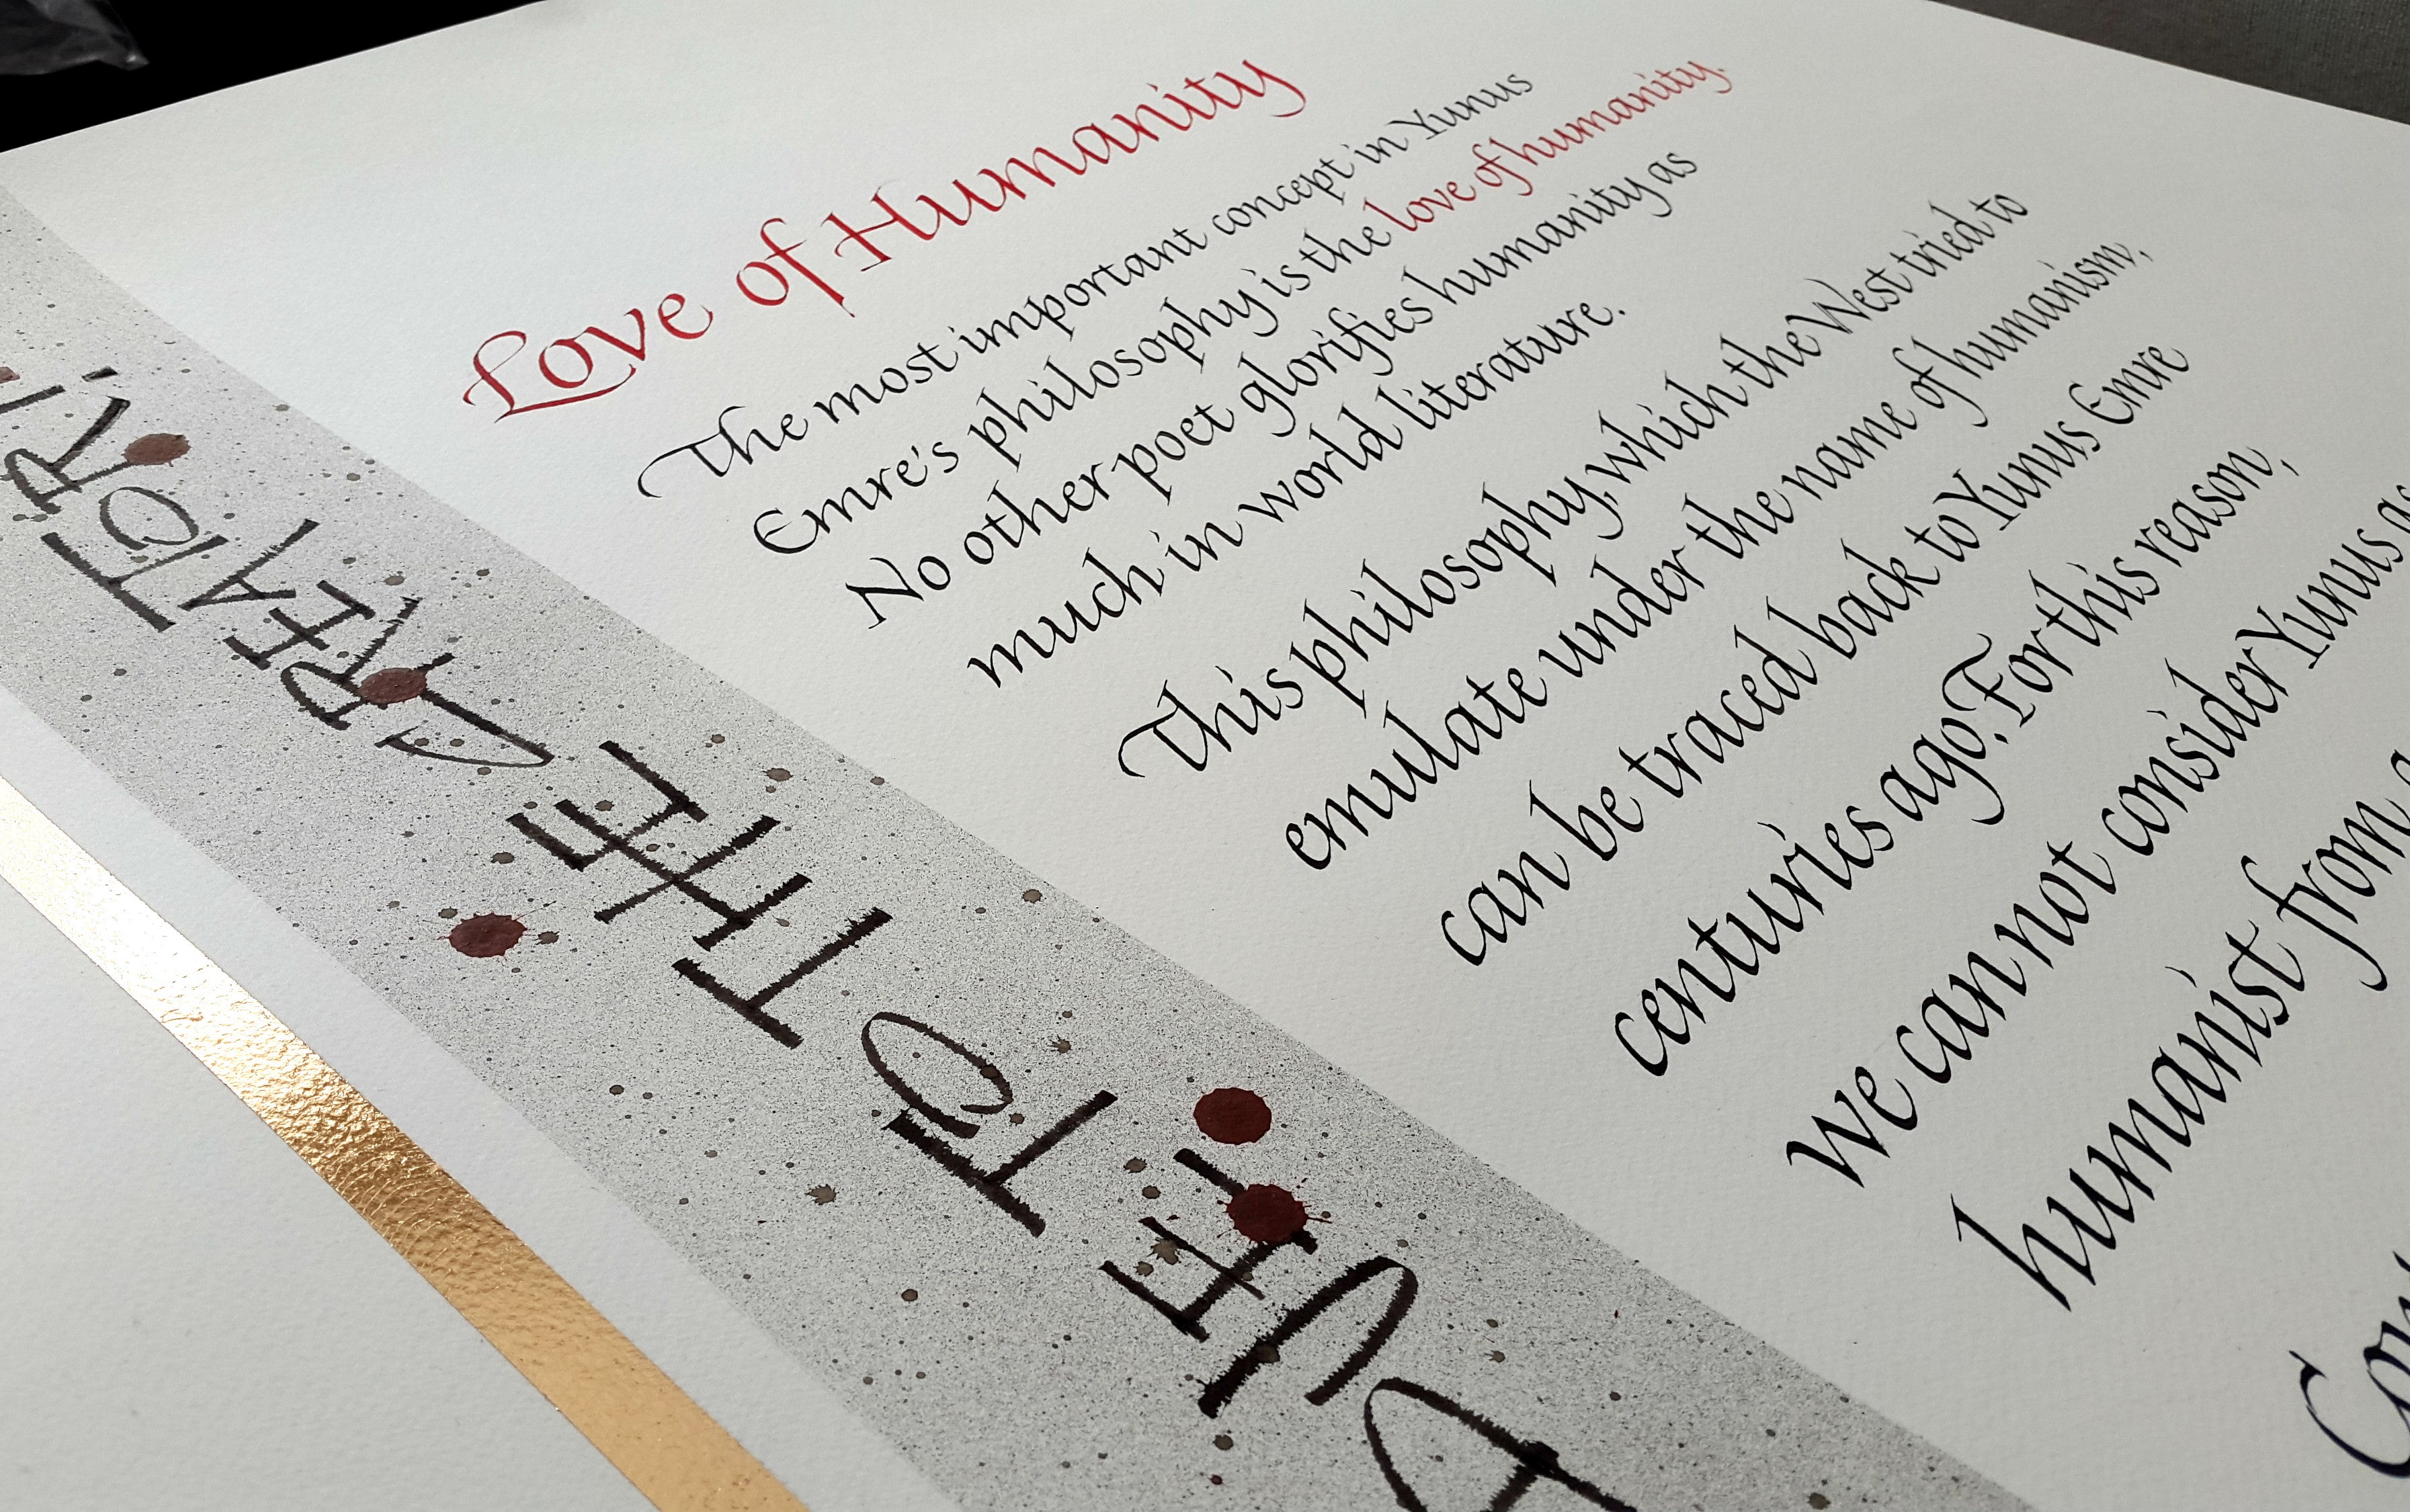 Love of Humanity
The most important concept in Yunus
Emre's philosophy is the love of humanity.
No other poet glorifies humanity as
much in world literature.
This philosophy, which the West tried to
emulate under the name of humanism,
can be traced back to Yunus Emre
centuries ago. For this reason,
we can not consider Yunus as
humanist from
DUE TO THE CREATOR!